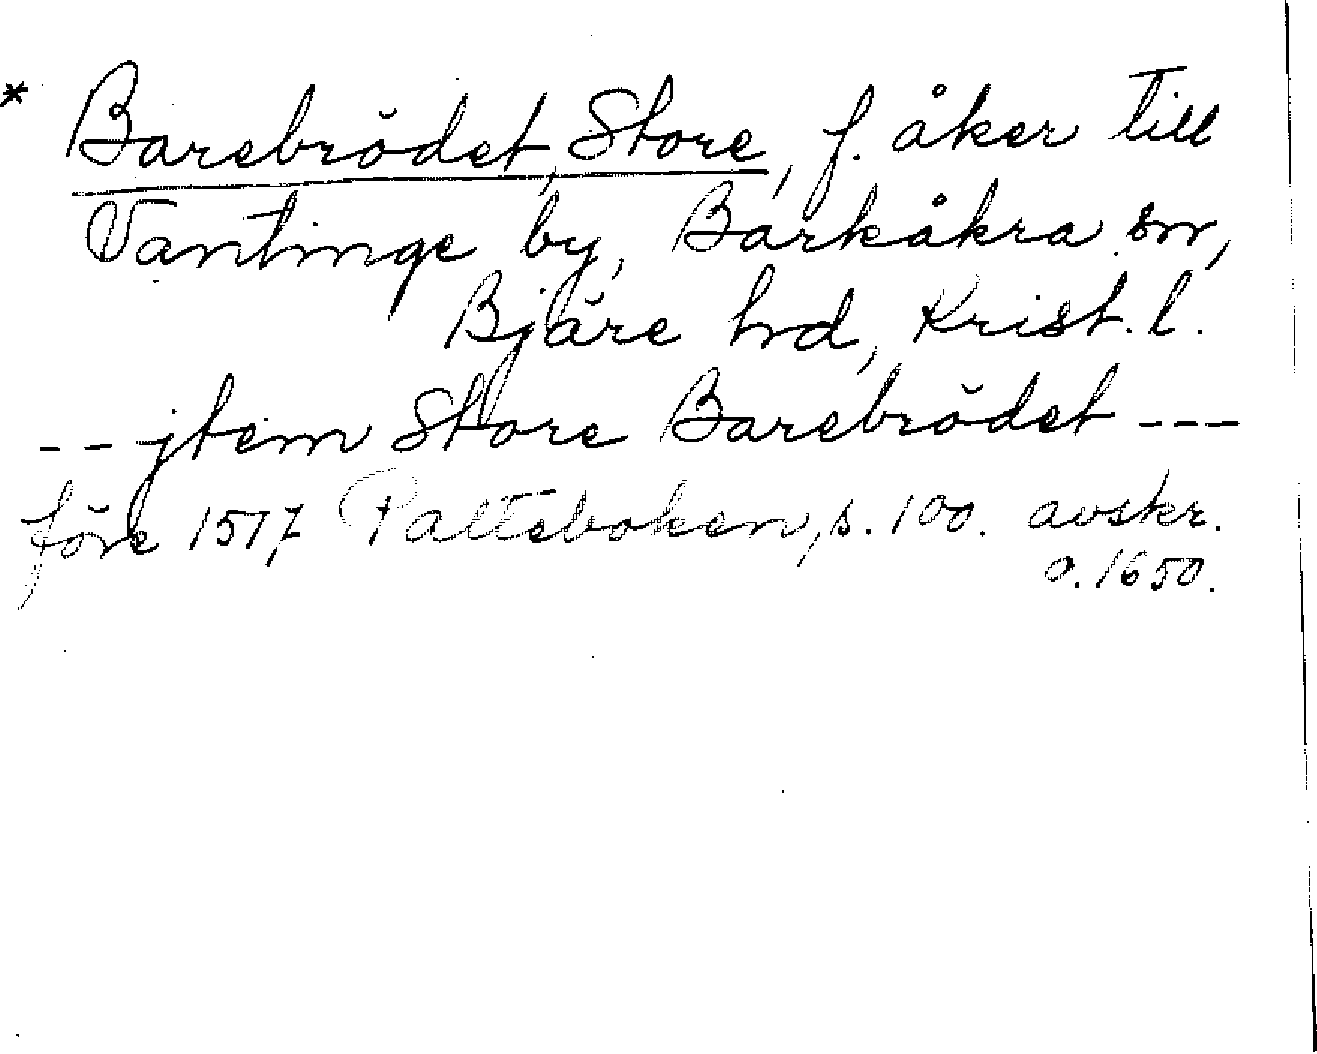 * Barebrödet, Store, f. åker till
Vantinge by, Barkåkra sn,
Bjäre hd, Krist. l.
-- jtem Store Barebrödet ---
före 1517 Palteboken, s. 100. avskr.
o. 1650.